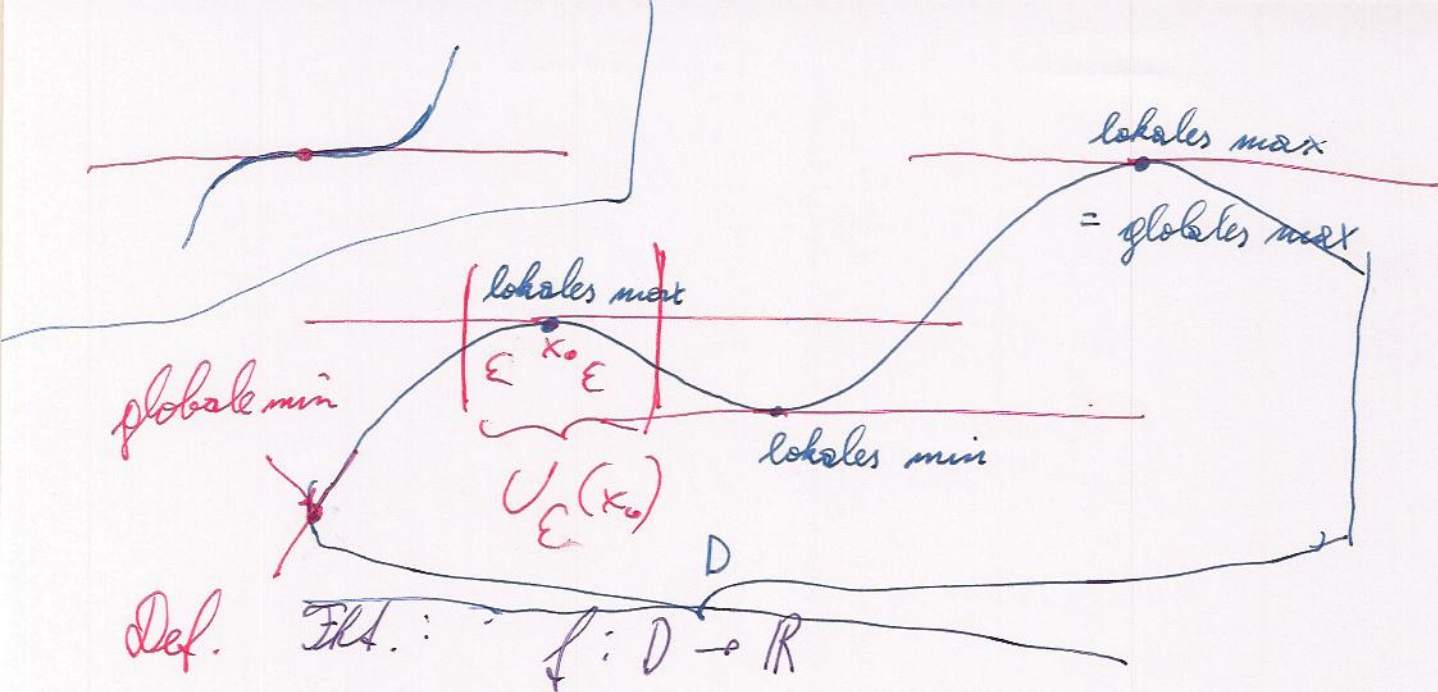 lokales max
= globales max
lokales max
ε x₀ ε
globale min
lokales min
U_ε(x₀)
D
Def. Fkt. : f : D → ℝ